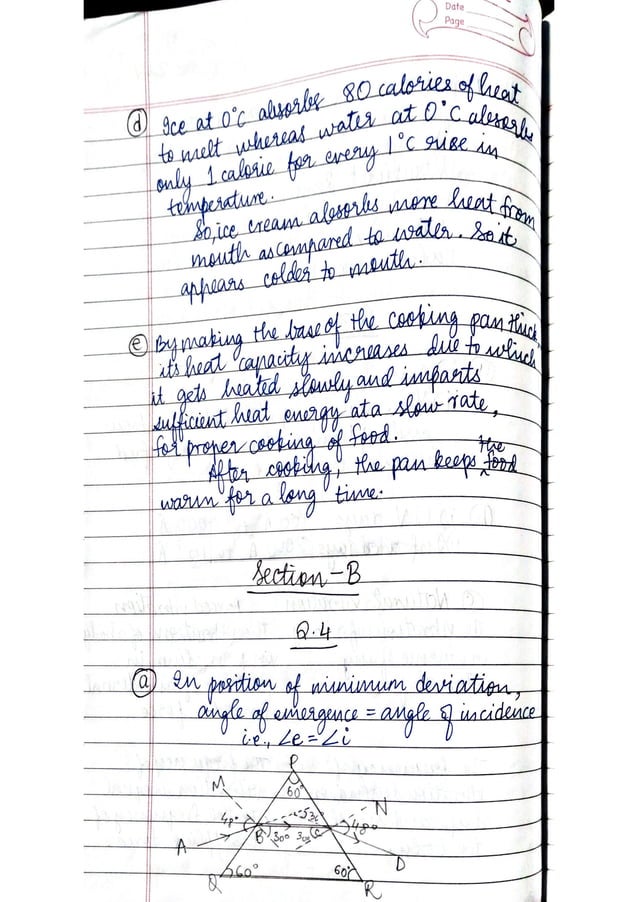 Date
Page
(d) Ice at 0°C absorbs 80 calories of heat
to melt whereas water at 0°C absorbs
only 1 calorie for every 1°C rise in
temperature.
So, ice cream absorbs more heat from
mouth as compared to water. So it
appears colder to mouth.
(e) By making the base of the cooking pan thick,
it's heat capacity increases due to which
it gets heated slowly and imparts
sufficient heat energy at a slow rate,
for proper cooking of food.
After cooking, the pan keeps the food
warm for a long time.
Section-B
Q.4
(a) In position of minimum deviation,
angle of emergence = angle of incidence
i.e., ∠e = ∠i
P
60°
M
N
48°
48°
B
30°
30°
C
A
D
Q
60°
60°
R